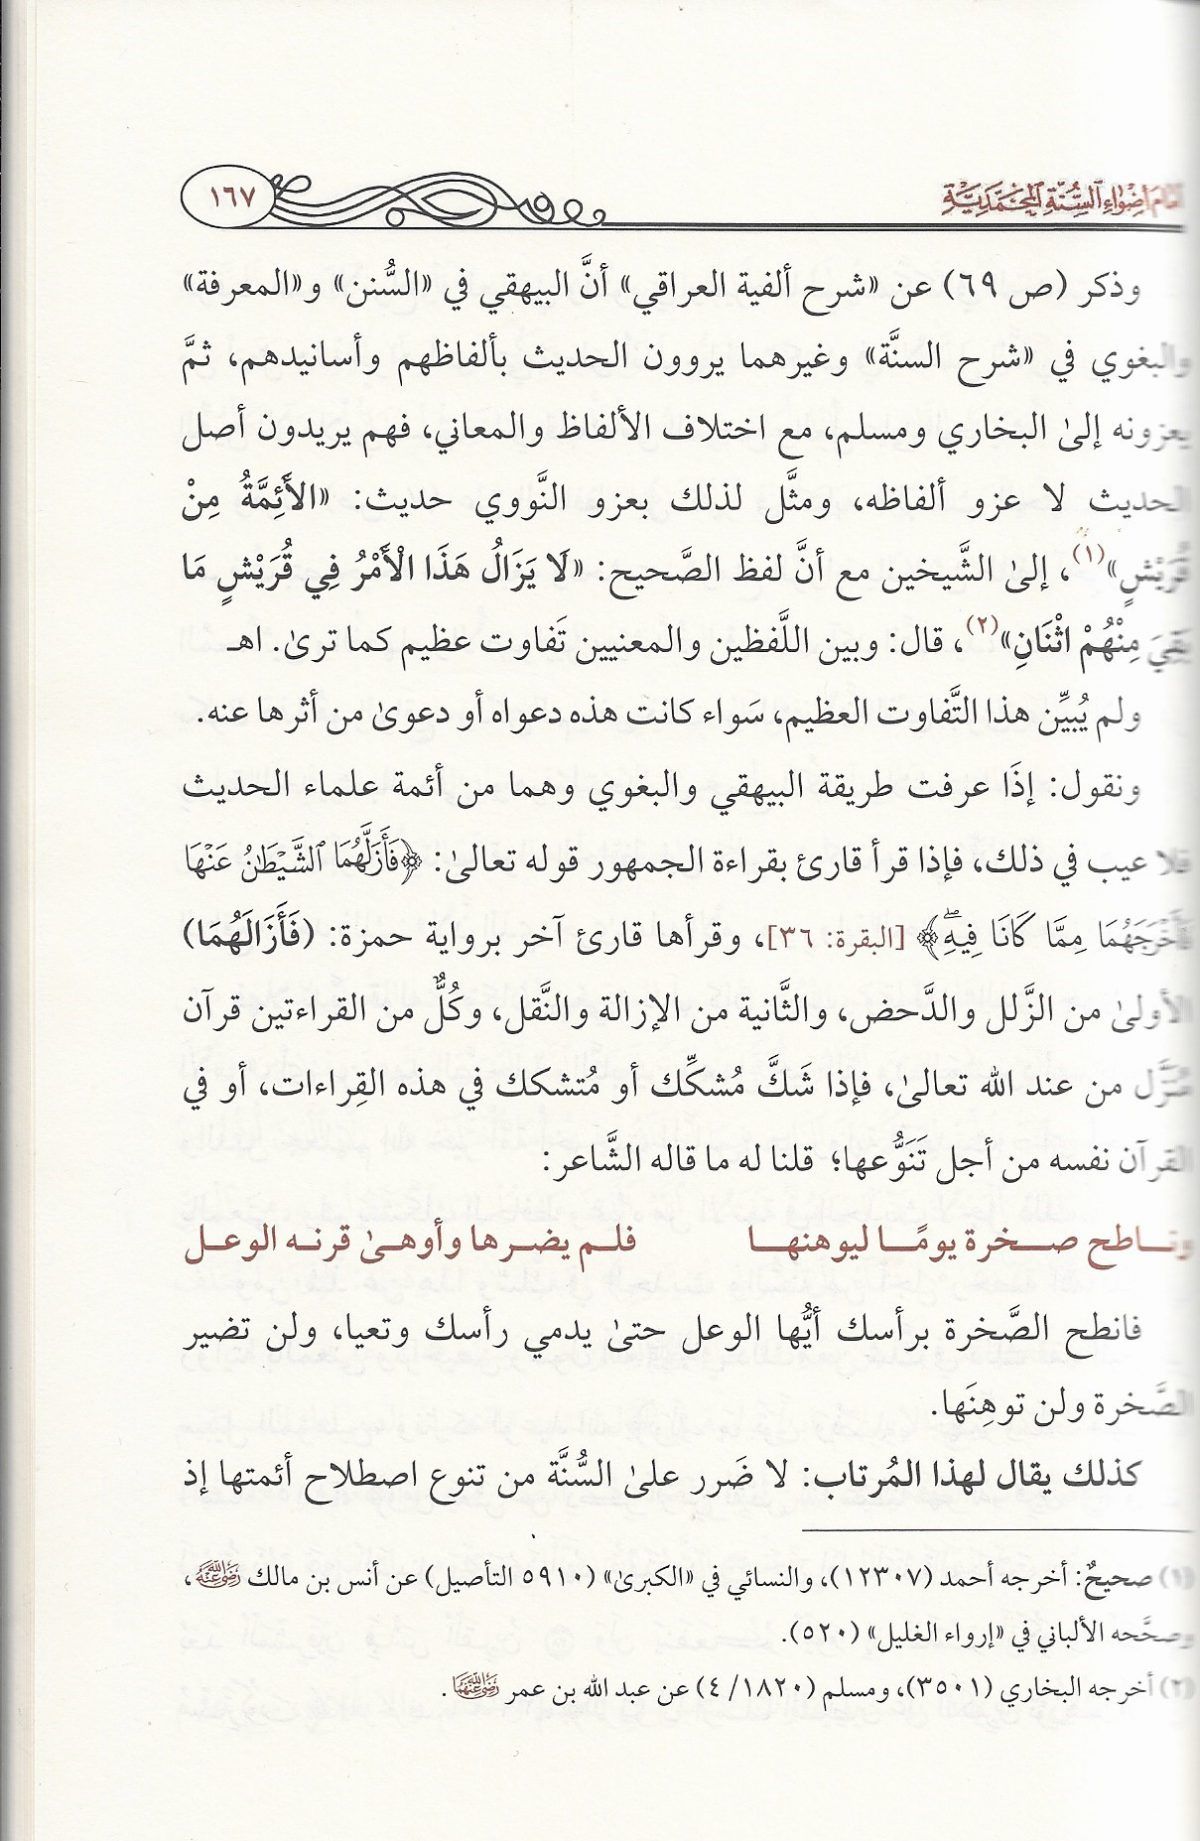 ١٦٧
أضواء السنة المحمدية
وذكر (ص ٦٩) عن «شرح ألفية العراقي» أنَّ البيهقي في «السُّنن» و«المعرفة»
والبغوي في «شرح السنَّة» وغيرهما يروون الحديث بألفاظهم وأسانيدهم، ثمَّ
يعزونه إلىٰ البخاري ومسلم، مع اختلاف الألفاظ والمعاني، فهم يريدون أصل
الحديث لا عزو ألفاظه، ومثَّل لذلك بعزو النَّووي حديث: «الأَئِمَّةُ مِنْ
قُرَيْشٍ»(١)، إلىٰ الشَّيخين مع أنَّ لفظ الصَّحيح: «لَا يَزَالُ هَذَا الْأَمْرُ فِي قُرَيْشٍ مَا
بَقِيَ مِنْهُمْ اثْنَانِ»(٢)، قال: وبين اللَّفظين والمعنيين تَفاوت عظيم كما ترىٰ. اهـ
ولم يُبيِّن هذا التَّفاوت العظيم، سَواء كانت هذه دعواه أو دعوىٰ من أثرها عنه.
ونقول: إذَا عرفت طريقة البيهقي والبغوي وهما من أئمة علماء الحديث
فلا عيب في ذلك، فإذا قرأ قارئ بقراءة الجمهور قوله تعالىٰ: ﴿فَأَزَلَّهُمَا ٱلشَّيْطَٰنُ عَنْهَا
فَأَخْرَجَهُمَا مِمَّا كَانَا فِيهِۖ﴾ [البقرة: ٣٦]، وقرأها قارئ آخر برواية حمزة: (فَأَزَالَهُمَا)
الأولىٰ من الزَّلل والدَّحض، والثَّانية من الإزالة والنَّقل، وكُلٌّ من القراءتين قرآن
مُنَزَّل من عند الله تعالىٰ، فإذا شَكَّ مُشكِّك أو مُتشكك في هذه القِراءات، أو في
القرآن نفسه من أجل تَنَوُّعها؛ قلنا له ما قاله الشَّاعر:
وناطح صخرة يومًا ليوهنها فلم يضرها وأوهىٰ قرنه الوعل
فانطح الصَّخرة برأسك أيُّها الوعل حتىٰ يدمي رأسك وتعيا، ولن تضير
الصَّخرة ولن توهِنَها.
كذلك يقال لهذا المُرتاب: لا ضَرر علىٰ السُّنَّة من تنوع اصطلاح أئمتها إذ
(١) صحيحٌ: أخرجه أحمد (١٢٣٠٧)، والنسائي في «الكبرىٰ» (٥٩١٠ التأصيل) عن أنس بن مالك رَضِيَ اللهُ عَنْهُ،
وصحَّحه الألباني في «إرواء الغليل» (٥٢٠).
(٢) أخرجه البخاري (٣٥٠١)، ومسلم (١٨٢٠/ ٤) عن عبد الله بن عمر رَضِيَ اللهُ عَنْهُمَا.